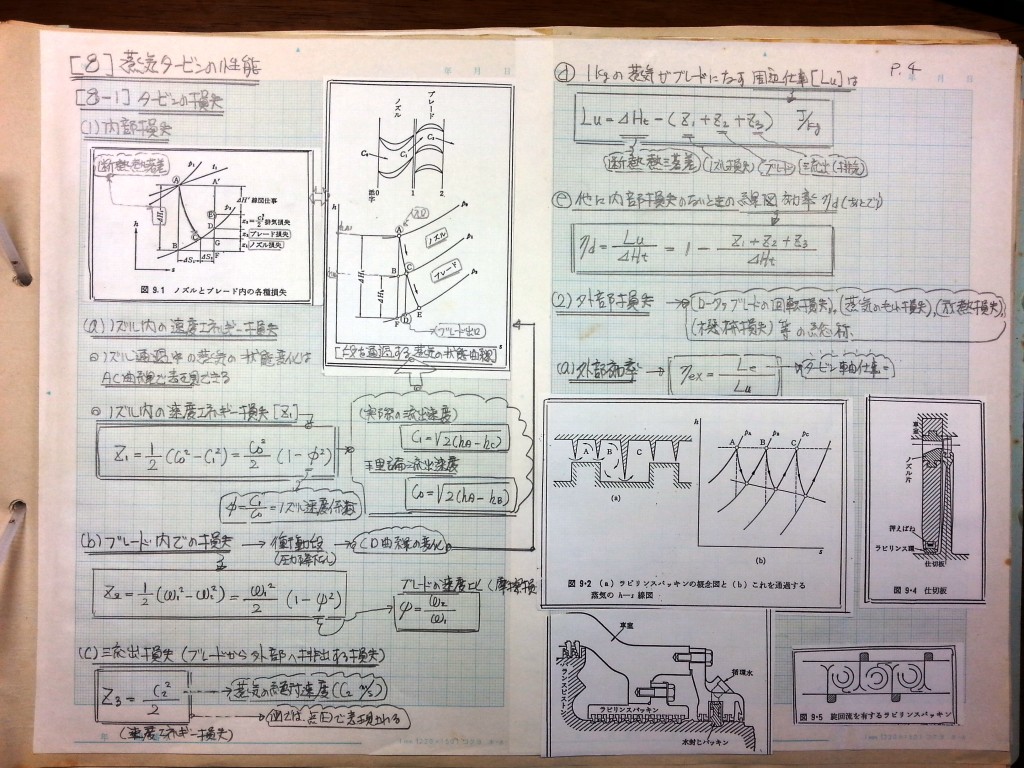 [8] 蒸気タービンの性能
[8-1] タービンの損失
(1) 内部損失
断熱熱落差
p₁
t₁
A
A'
ΔH' 線図仕事
p₂
E
z₃=C₂²/2 排気損失
D
z₂ ブレード損失
C
z₁ ノズル損失
G
B
F
h
s
図 9.1 ノズルとブレード内の各種損失
ノズル
ブレード
C₀
C₁
C₂
添字0 1 2
h
p₀
A
ノズル
p₁
B
C
ブレード
p₂
F
D
E
ブレード出口
[段を通過する蒸気の状態曲線]
(a) ノズル内の速度エネルギー損失
◎ノズル通過中の蒸気の状態変化は
AC曲線で表現できる
◎ノズル内の速度エネルギー損失[Z₁]
Z₁ = 1/2 (C₀² - C₁²) = C₀²/2 (1 - φ²)
φ = C₁/C₀ = ノズル速度係数
(実際の流出速度)
C₁ = √2(hA - hC)
理論流出速度
C₀ = √2(hA - hB)
(b) ブレード内での損失 → 衝動段 → CD曲線の変化
(圧力降下なし)
Z₂ = 1/2 (ω₁² - ω₂²) = ω₁²/2 (1 - ψ²)
ブレードの速度比 (摩擦損
ψ = ω₂/ω₁
(c) 流出損失 (ブレードから外部へ排出する損失)
Z₃ = C₂²/2
→ 蒸気の絶対速度 (C₂ m/s)
図では 点Eで表現される
(速度エネルギー損失)
P.4
(d) 1kgの蒸気がブレードになす周辺仕事[Lu]は
Lu = ΔHt - (Z₁ + Z₂ + Z₃) J/kg
断熱熱落差
ノズル損失
ブレード
流出(排気)
(e) 他に内部損失のないときの線図効率 ηd
ηd = Lu/ΔHt = 1 - Z₁ + Z₂ + Z₃/ΔHt
(2) 外部損失 → (ロータやブレードの回転損失), (蒸気のもれ損失), (放熱損失)
(機械損失) 等の総称
(a) 外部効率 → ηex = Le/Lu → タービン軸仕事
A
B
C
(a)
h
pA
pB
pC
A
B
C
s
(b)
図 9・2 (a) ラビリンスパッキンの概念図と (b) これを通過する
蒸気の h—s 線図
車室
ノズル片
押えばね
ラビリンス環
仕切板
図 9・4 仕切板
車室
循環水
ラビリンスパッキン
水封じパッキン
図 9・5 旋回流を有するラビリンスパッキン